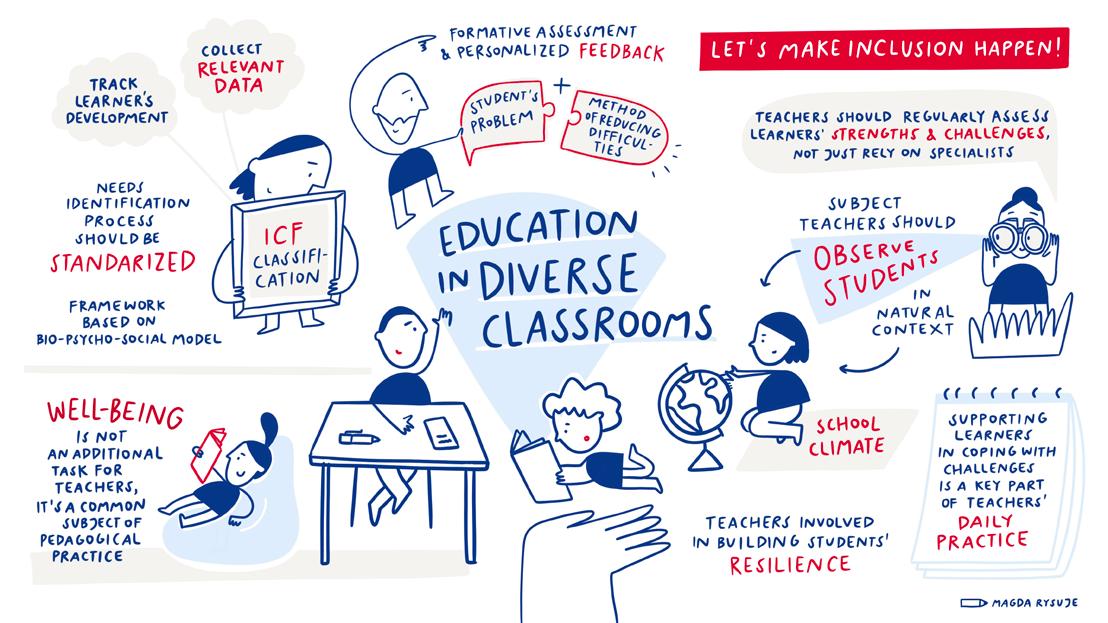 TRACK
LEARNER'S
DEVELOPMENT
COLLECT
RELEVANT
DATA
FORMATIVE ASSESSMENT
& PERSONALIZED FEEDBACK
STUDENT'S
PROBLEM
+
METHOD
OF REDUCING
DIFFICUL-
TIES
LET'S MAKE INCLUSION HAPPEN!
TEACHERS SHOULD REGULARLY ASSESS
LEARNERS' STRENGTHS & CHALLENGES,
NOT JUST RELY ON SPECIALISTS
NEEDS
IDENTIFICATION
PROCESS
SHOULD BE
STANDARIZED
FRAMEWORK
BASED ON
BIO-PSYCHO-SOCIAL MODEL
ICF
CLASSIFI-
CATION
EDUCATION
IN DIVERSE
CLASSROOMS
SUBJECT
TEACHERS SHOULD
OBSERVE
STUDENTS
IN
NATURAL
CONTEXT
WELL-BEING
IS NOT
AN ADDITIONAL
TASK FOR
TEACHERS,
IT'S A COMMON
SUBJECT OF
PEDAGOGICAL
PRACTICE
SCHOOL
CLIMATE
TEACHERS INVOLVED
IN BUILDING STUDENTS'
RESILIENCE
SUPPORTING
LEARNERS
IN COPING WITH
CHALLENGES
IS A KEY PART
OF TEACHERS'
DAILY
PRACTICE
MAGDA RYSUJE